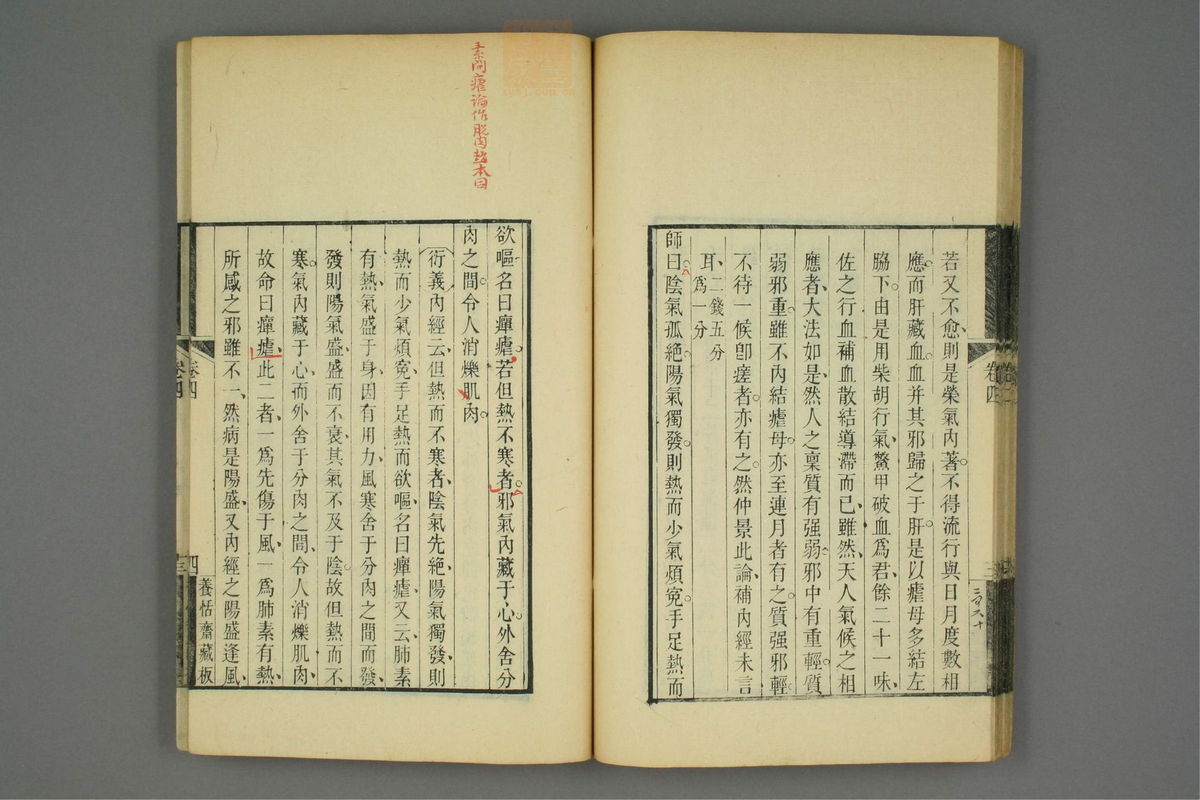 若又不愈則是榮氣內著不得流行與日月度數相
應而肝藏血血并其邪歸之于肝是以瘧母多結左
脇下由是用柴胡行氣鱉甲破血爲君餘二十一味
佐之行血補血散結導滯而已雖然天人氣候之相
應者大法如是然人之稟質有强弱邪中有重輕質
弱邪重雖不內結瘧母亦至連月者有之質强邪輕
不待一候卽瘥者亦有之然仲景此論補內經未言
耳二錢五分
爲一分
師曰陰氣孤絶陽氣獨發則熱而少氣煩寃手足熱而
卷四
欲嘔名曰癉瘧若但熱不寒者邪氣內藏于心外舍分
肉之間令人消爍肌肉
衍義內經云但熱而不寒者陰氣先絶陽氣獨發則
熱而少氣煩寃手足熱而欲嘔名曰癉瘧又云肺素
有熱氣盛于身因有用力風寒舍于分肉之間而發
發則陽氣盛盛而不衰其氣不及于陰故但熱而不
寒氣內藏于心而外舍于分肉之間令人消爍肌肉
故命曰癉瘧此二者一爲先傷于風一爲肺素有熱
所感之邪雖不一然病是陽盛又內經之陽盛逢風
卷四
養恬齋藏板
素問瘧論作脫肉趙本同